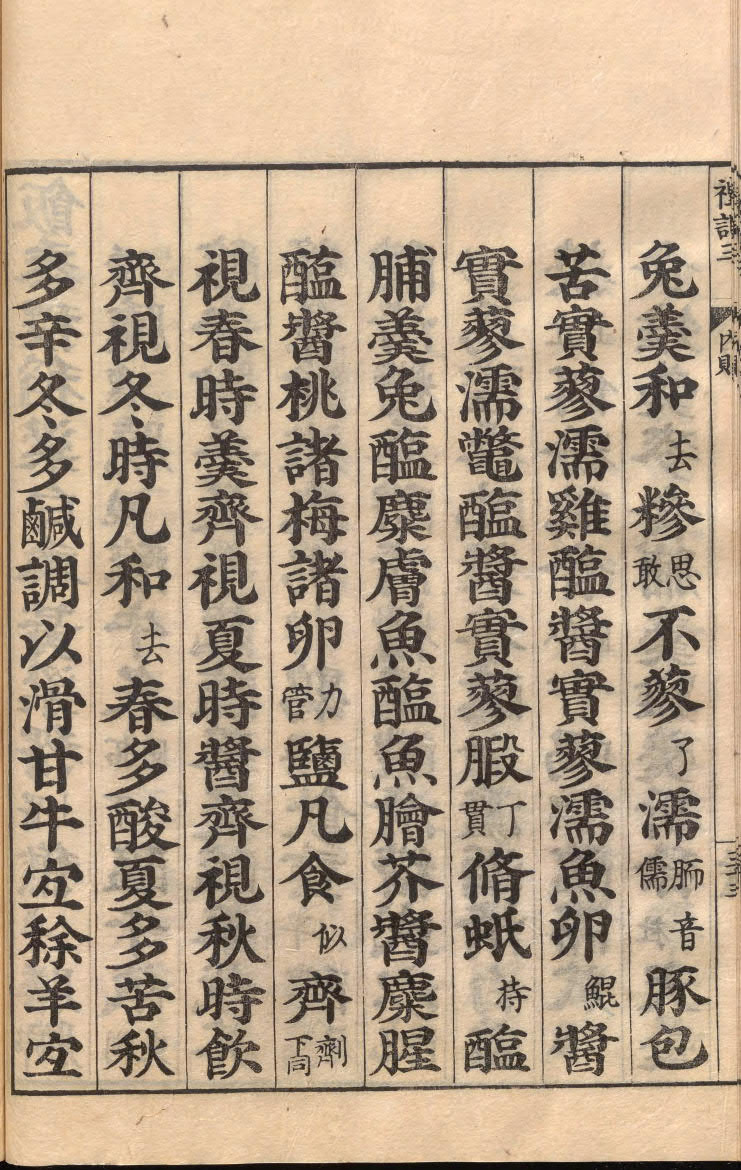 兔羹和去糝思敢不蓼了濡胹音儒豚包
苦實蓼濡雞醢醬實蓼濡魚卵鯤醬
實蓼濡鼈醢醬實蓼腶丁貫脩蚳持醢
脯羹兔醢麋膚魚醢魚膾芥醬麋腥
醢醬桃諸梅諸卵力管鹽凡食似齊劑下同
視春時羹齊視夏時醬齊視秋時飲
齊視冬時凡和去春多酸夏多苦秋
多辛冬多鹹調以滑甘牛宐稌羊宐